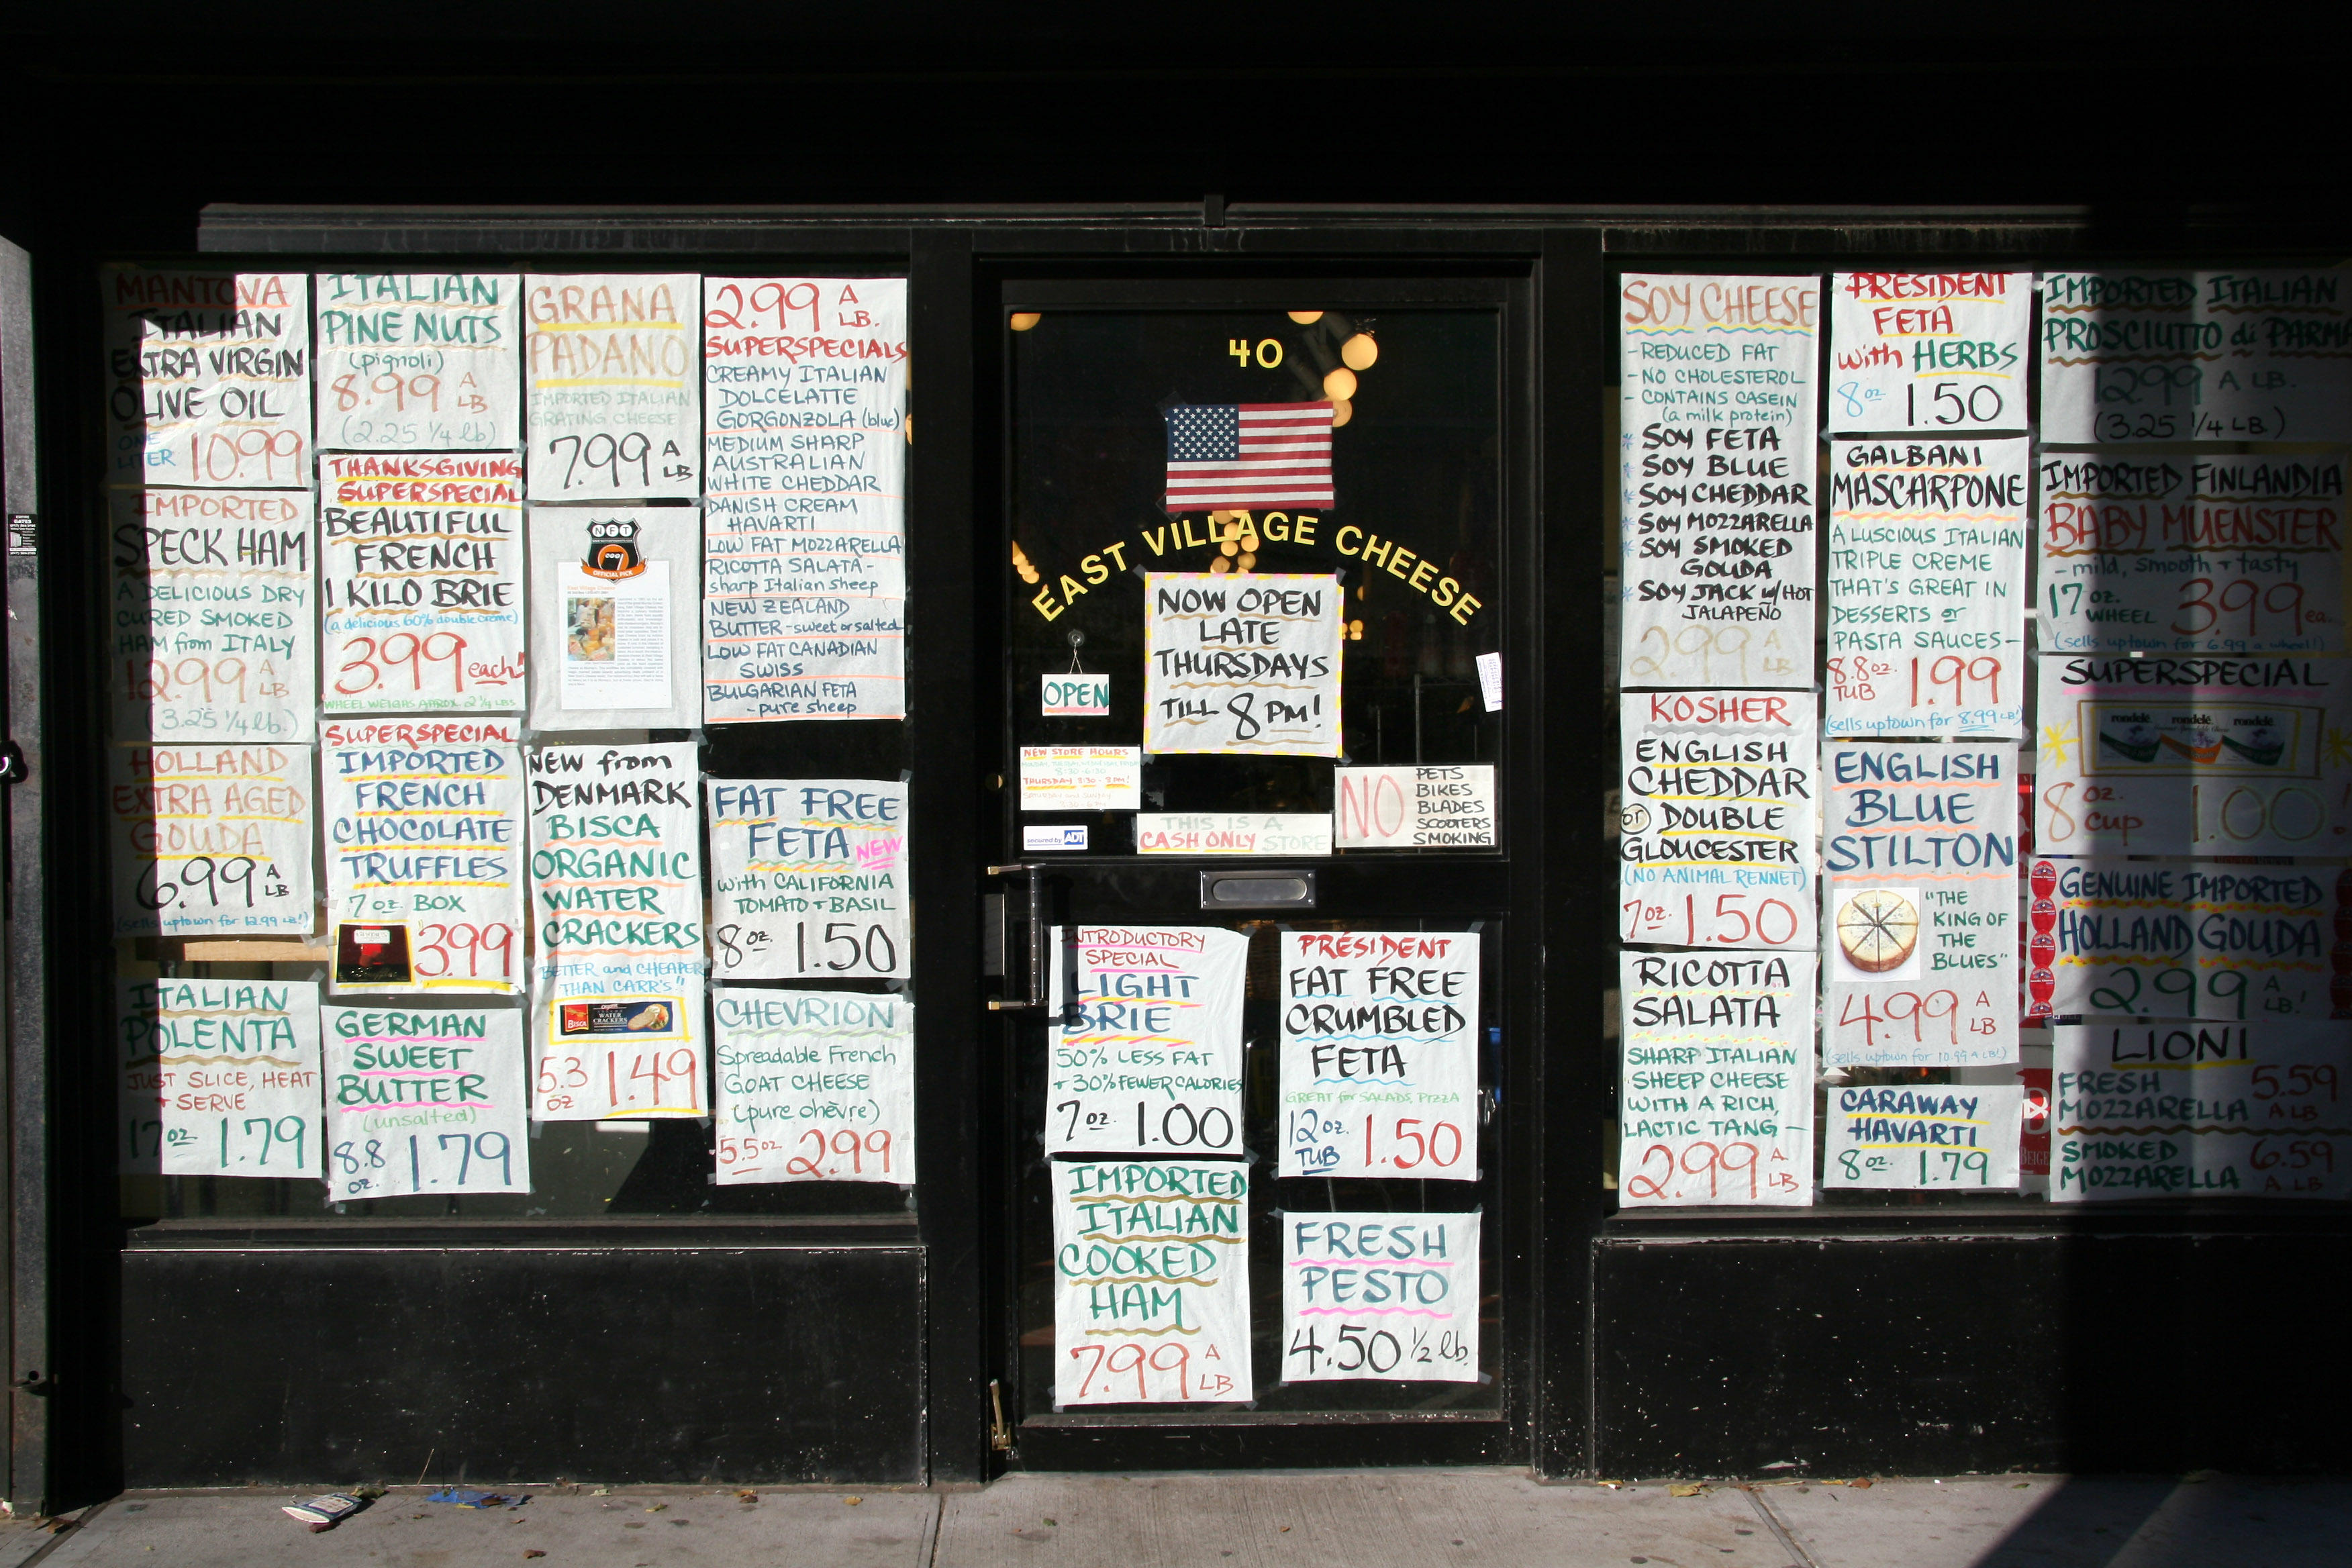 MANTOVA
ITALIAN
EXTRA VIRGIN
OLIVE OIL
ONE LITER 10.99
IMPORTED
SPECK HAM
A DELICIOUS DRY
CURED SMOKED
HAM from ITALY
12.99 A LB
(3.25 1/4 lb.)
HOLLAND
EXTRA AGED
GOUDA
6.99 A LB
(sells uptown for 12.99 LB!)
ITALIAN
POLENTA
JUST SLICE, HEAT
+ SERVE
17 oz 1.79
ITALIAN
PINE NUTS
(pignoli)
8.99 A LB
(2.25 1/4 lb)
THANKSGIVING
SUPERSPECIAL
BEAUTIFUL
FRENCH
1 KILO BRIE
(a delicious 60% double creme)
3.99 each!
WHEEL WEIGHS APPROX. 2 1/4 LBS
SUPERSPECIAL
IMPORTED
FRENCH
CHOCOLATE
TRUFFLES
7 oz. BOX
3.99
GERMAN
SWEET
BUTTER
(unsalted)
8.8 oz. 1.79
GRANA
PADANO
IMPORTED ITALIAN
GRATING CHEESE
7.99 A LB
NFT
OFFICIAL PICK
NEW from
DENMARK
BISCA
ORGANIC
WATER
CRACKERS
BETTER and CHEAPER
THAN CARR'S!!
BISCA
WATER
CRACKERS
5.3 OZ 1.49
2.99 A LB.
SUPERSPECIALS
CREAMY ITALIAN
DOLCELATTE
GORGONZOLA (blue)
MEDIUM SHARP
AUSTRALIAN
WHITE CHEDDAR
DANISH CREAM
HAVARTI
LOW FAT MOZZARELLA
RICOTTA SALATA-
sharp Italian sheep
NEW ZEALAND
BUTTER - sweet or salted
LOW FAT CANADIAN
SWISS
BULGARIAN FETA
- pure sheep
FAT FREE
FETA NEW
with CALIFORNIA
TOMATO + BASIL
8 oz. 1.50
CHEVRION
Spreadable French
GOAT CHEESE
(pure chèvre)
5.5 oz 2.99
40
EAST VILLAGE CHEESE
NOW OPEN
LATE
THURSDAYS
TILL 8 PM!
OPEN
NEW STORE HOURS
THURSDAY 8:30 - 8PM!
secured by ADT
THIS IS A
CASH ONLY STORE
NO PETS
BIKES
BLADES
SCOOTERS
SMOKING
INTRODUCTORY
SPECIAL
LIGHT
BRIE
50% LESS FAT
+ 30% FEWER CALORIES
7 oz. 1.00
IMPORTED
ITALIAN
COOKED
HAM
7.99 A LB
PRÉSIDENT
FAT FREE
CRUMBLED
FETA
GREAT for SALADS, PIZZA
12 oz. TUB 1.50
FRESH
PESTO
4.50 1/2 lb.
SOY CHEESE
- REDUCED FAT
- NO CHOLESTEROL
- CONTAINS CASEIN
(a milk protein)
* SOY FETA
* SOY BLUE
* SOY CHEDDAR
* SOY MOZZARELLA
* SOY SMOKED
GOUDA
* SOY JACK w/ HOT
JALAPEÑO
2.99 A LB
KOSHER
ENGLISH
CHEDDAR
or DOUBLE
GLOUCESTER
(NO ANIMAL RENNET)
7 oz. 1.50
RICOTTA
SALATA
SHARP ITALIAN
SHEEP CHEESE
WITH A RICH,
LACTIC TANG -
2.99 A LB
PRÉSIDENT
FETA
with HERBS
8 oz 1.50
GALBANI
MASCARPONE
A LUSCIOUS ITALIAN
TRIPLE CREME
THAT'S GREAT IN
DESSERTS or
PASTA SAUCES -
8.8 oz. TUB 1.99
(sells uptown for 8.99 LB!)
ENGLISH
BLUE
STILTON
"THE
KING OF
THE
BLUES"
4.99 A LB
(sells uptown for 10.99 A LB!)
CARAWAY
HAVARTI
8 oz. 1.79
IMPORTED ITALIAN
PROSCIUTTO di PARMA
12.99 A LB.
(3.25 1/4 LB.)
IMPORTED FINLANDIA
BABY MUENSTER
- mild, smooth + tasty
17 oz. WHEEL 3.99 ea.
(sells uptown for 6.99 a wheel!)
SUPERSPECIAL
rondelé rondelé rondelé
8 oz. cup 1.00
GENUINE IMPORTED
HOLLAND GOUDA
2.99 A LB!
LIONI
FRESH
MOZZARELLA 5.59 A LB
SMOKED
MOZZARELLA 6.59 A LB